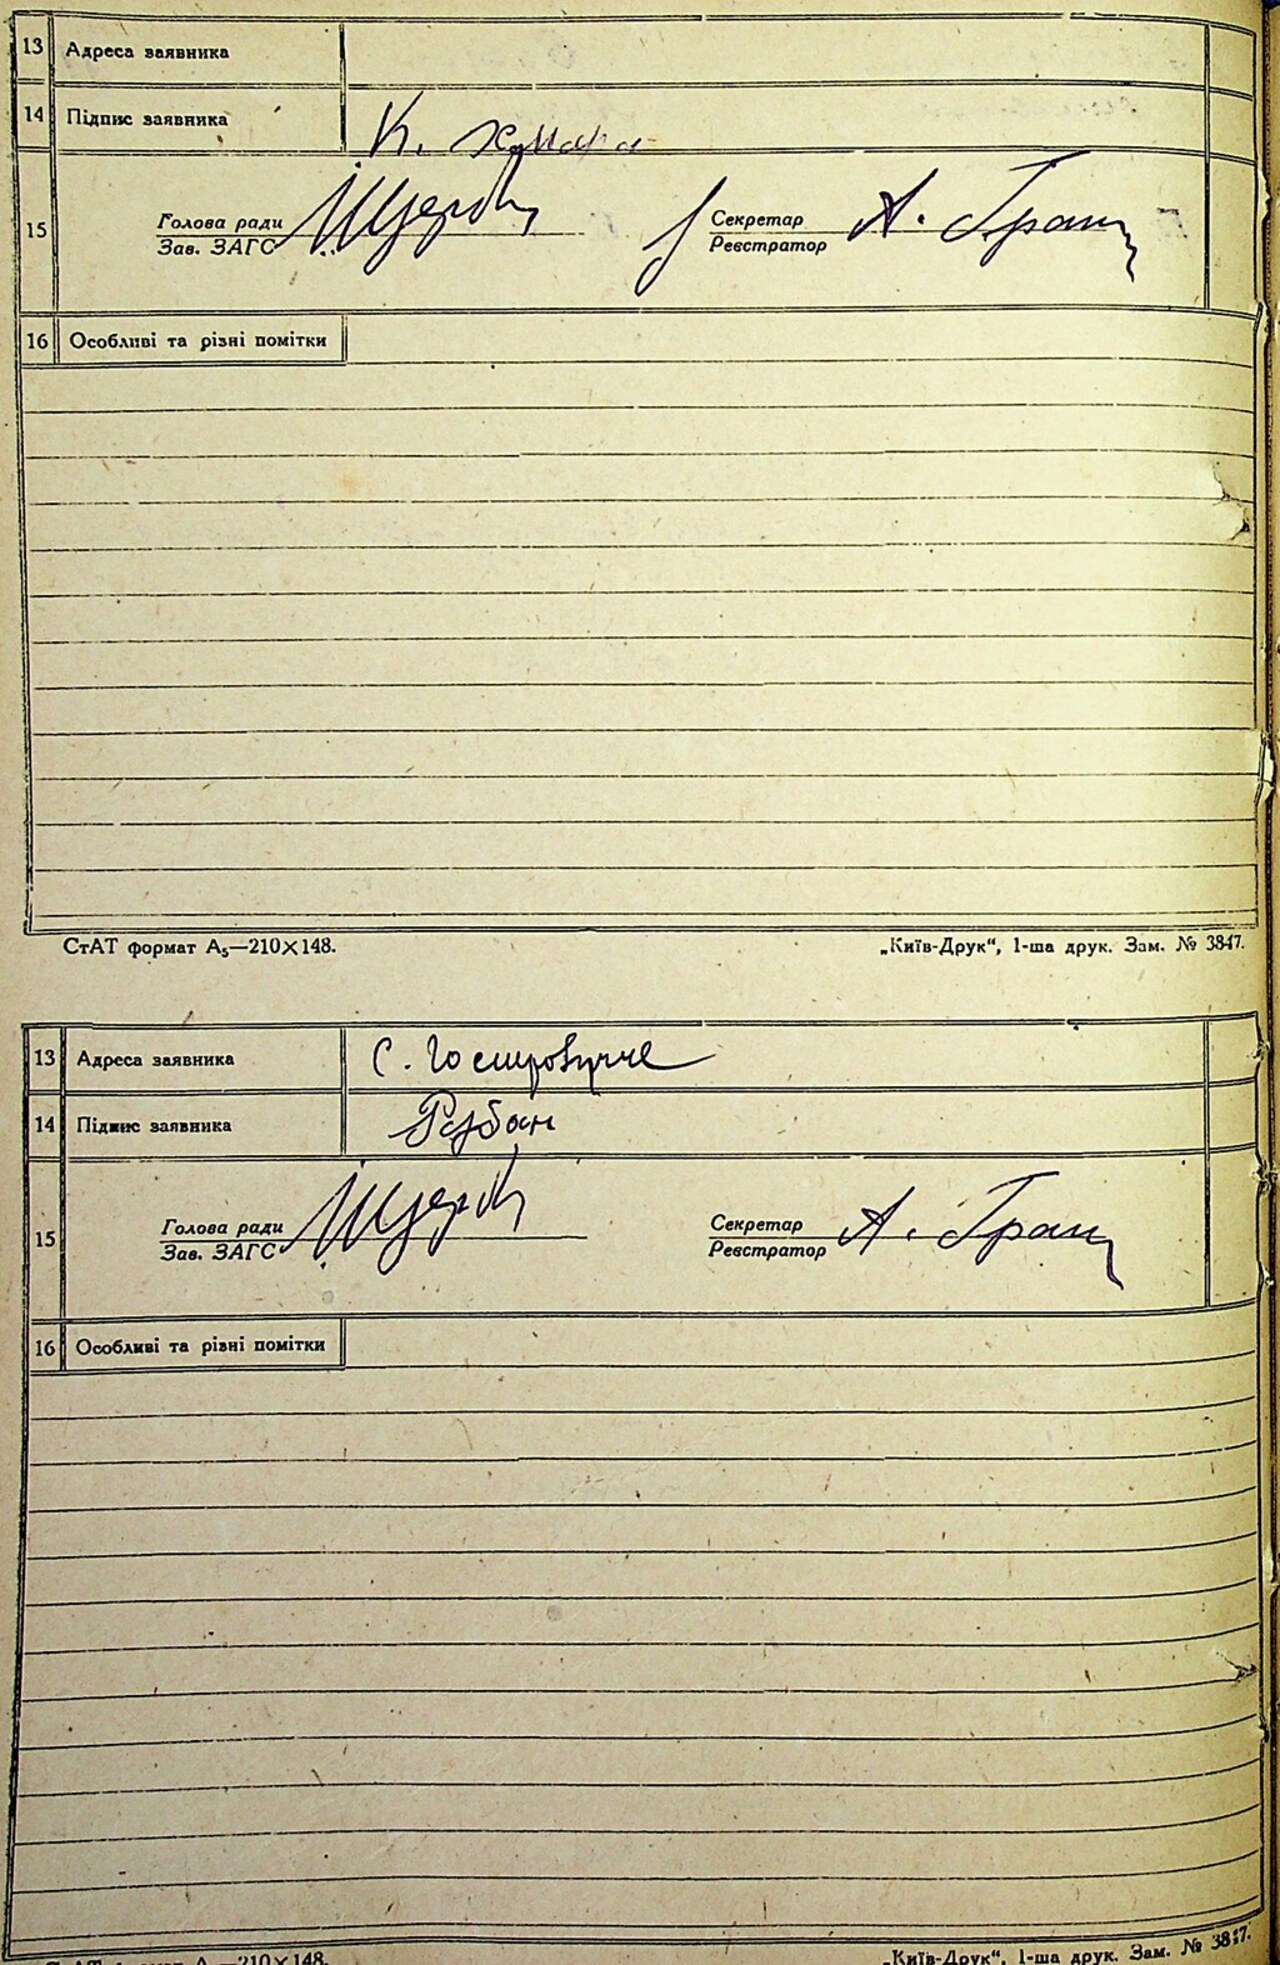 13 Адреса заявника
14 Підпис заявника К. Хмара
15 Голова ради Секретар А. Гращ
Зав. ЗАГС Реєстратор
16 Особливі та різні помітки
СтАТ формат А₅—210×148. „Київ-Друк“, 1-ша друк. Зам. № 3847.
13 Адреса заявника С.
14 Підпис заявника Рубан
15 Голова ради Секретар А. Гращ
Зав. ЗАГС Реєстратор
16 Особливі та різні помітки
СтАТ формат А₅—210×148. „Київ-Друк“, 1-ша друк. Зам. № 3847.